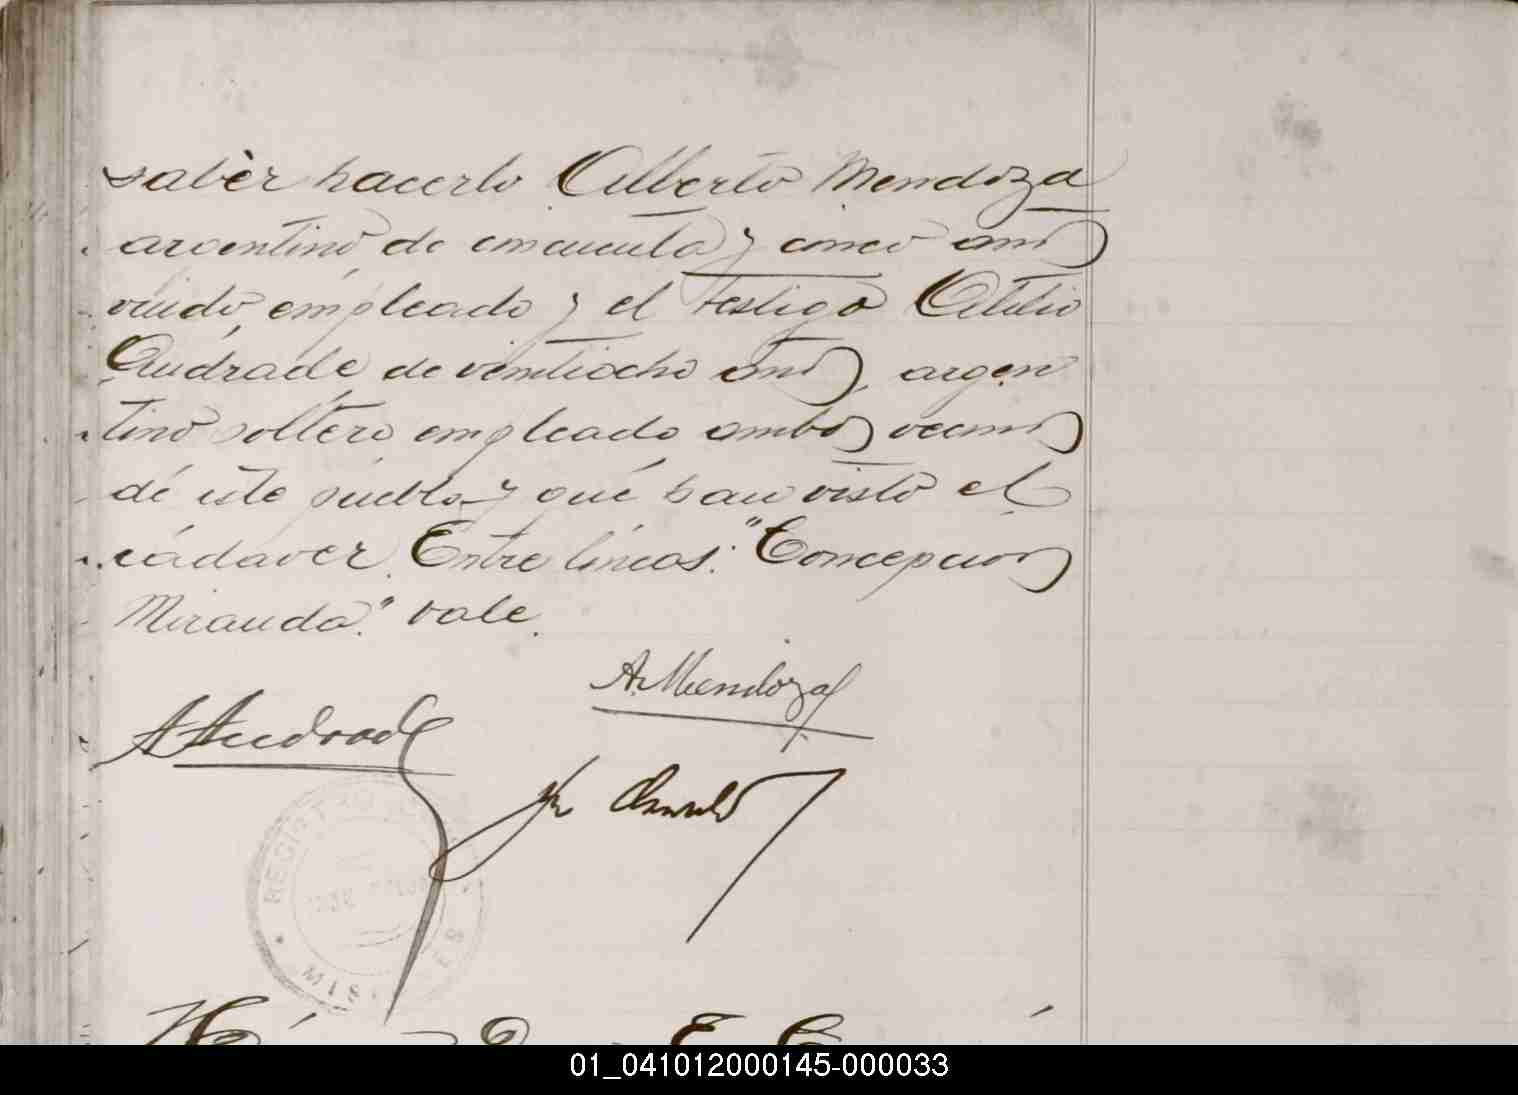 saber hacerlo Alberto Mendoza
argentino de cincuenta y cinco años
viudo, empleado y el testigo Atilio
Andrade de veintiocho años, argen
tino soltero empleado ambos vecinos
de este pueblo y que han visto el
cadaver. Entre lineas: "Concepcion
Miranda." vale.
A. Mendoza
A Andrade
REGISTRO
MISIONES
01_041012000145-000033